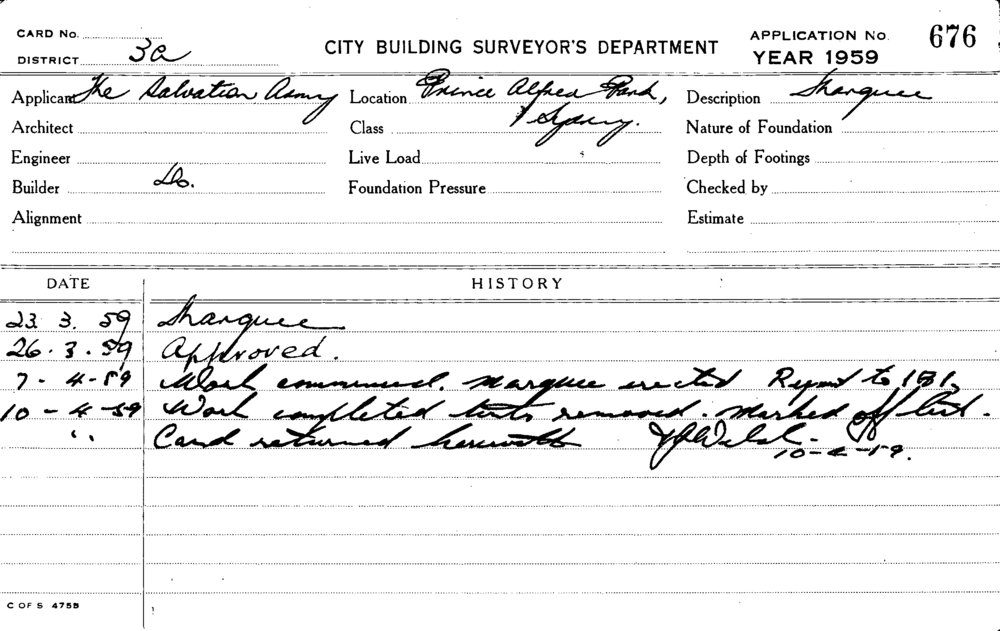 CARD No.
DISTRICT 3a
CITY BUILDING SURVEYOR'S DEPARTMENT
APPLICATION No. 676
YEAR 1959
Applicant The Salvation Army
Location Prince Alfred Park,
Sydney.
Description Marquee
Architect
Class
Nature of Foundation
Engineer
Live Load
Depth of Footings
Builder Do.
Foundation Pressure
Checked by
Alignment
Estimate
DATE HISTORY
23. 3. 59 Marquee
26. 3. 59 Approved.
7 - 4 - 59 Work commenced. Marquee erected Report to
10 - 4 - 59 Work completed tents removed. Marked off list.
" Card returned herewith
10-4-59.
C OF S 475B